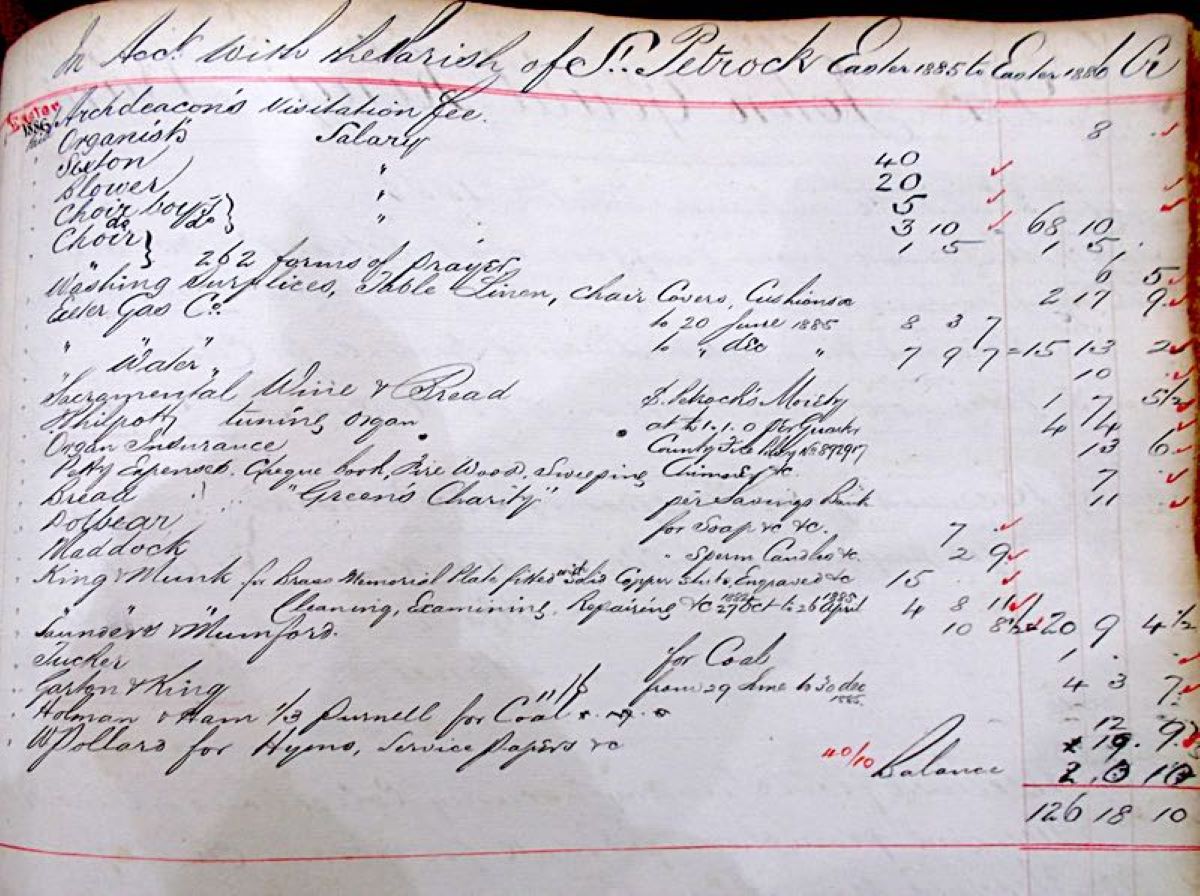 In Acct with the Parish of St. Petrock Easter 1885 to Easter 1886 Cr
Easter 1886 Archdeacon's Visitation fee. 8
Organist's Salary 40
Sexton " 20
Blower " 5
Choir boys 3 10 68 10
Choir do 1 5 1 5
" 262 forms of Prayer 6 5
Washing Surplices, Table Linen, Chair Covers, Cushions &c 2 17 9
Exeter Gas Co. to 20 June 1885 8 3 7
" " to " dec " 7 9 7 = 15 13 2
" Water " 10
Sacramental Wine & Bread St. Petrock's Moiety 1 7 5 1/2
Philpott tuning organ at £1.1.0 per Quarter 4 4
Organ Insurance County Fire Policy No 892917 13 6
Petty Expenses. Cheque book, Fire Wood, Sweeping Chimney &c. 7
Bread "Green's Charity" per Savings Bank 11
Dolbear for Soap &c &c. 7
Maddock " Sperm Candles &c. 2 9
King & Munk for Brass Memorial Plate fitted with Solid Copper Studs, Engraved &c 15
" " " Cleaning, Examining, Repairing &c 27 Oct 1884 to 26 April 1885 4 8 11
Saunders & Mumford. 10 8 1/2 20 9 4 1/2
Tucker for Coal 1
Garton & King from 29 June to 30 dec 1885. 4 3 7
Holman & Ham 1/3 Purnell for Coal 11/8 12 9
W Pollard for Hymns, Service Papers &c 19. 9
40/10 Balance 2 0 10
126 18 10